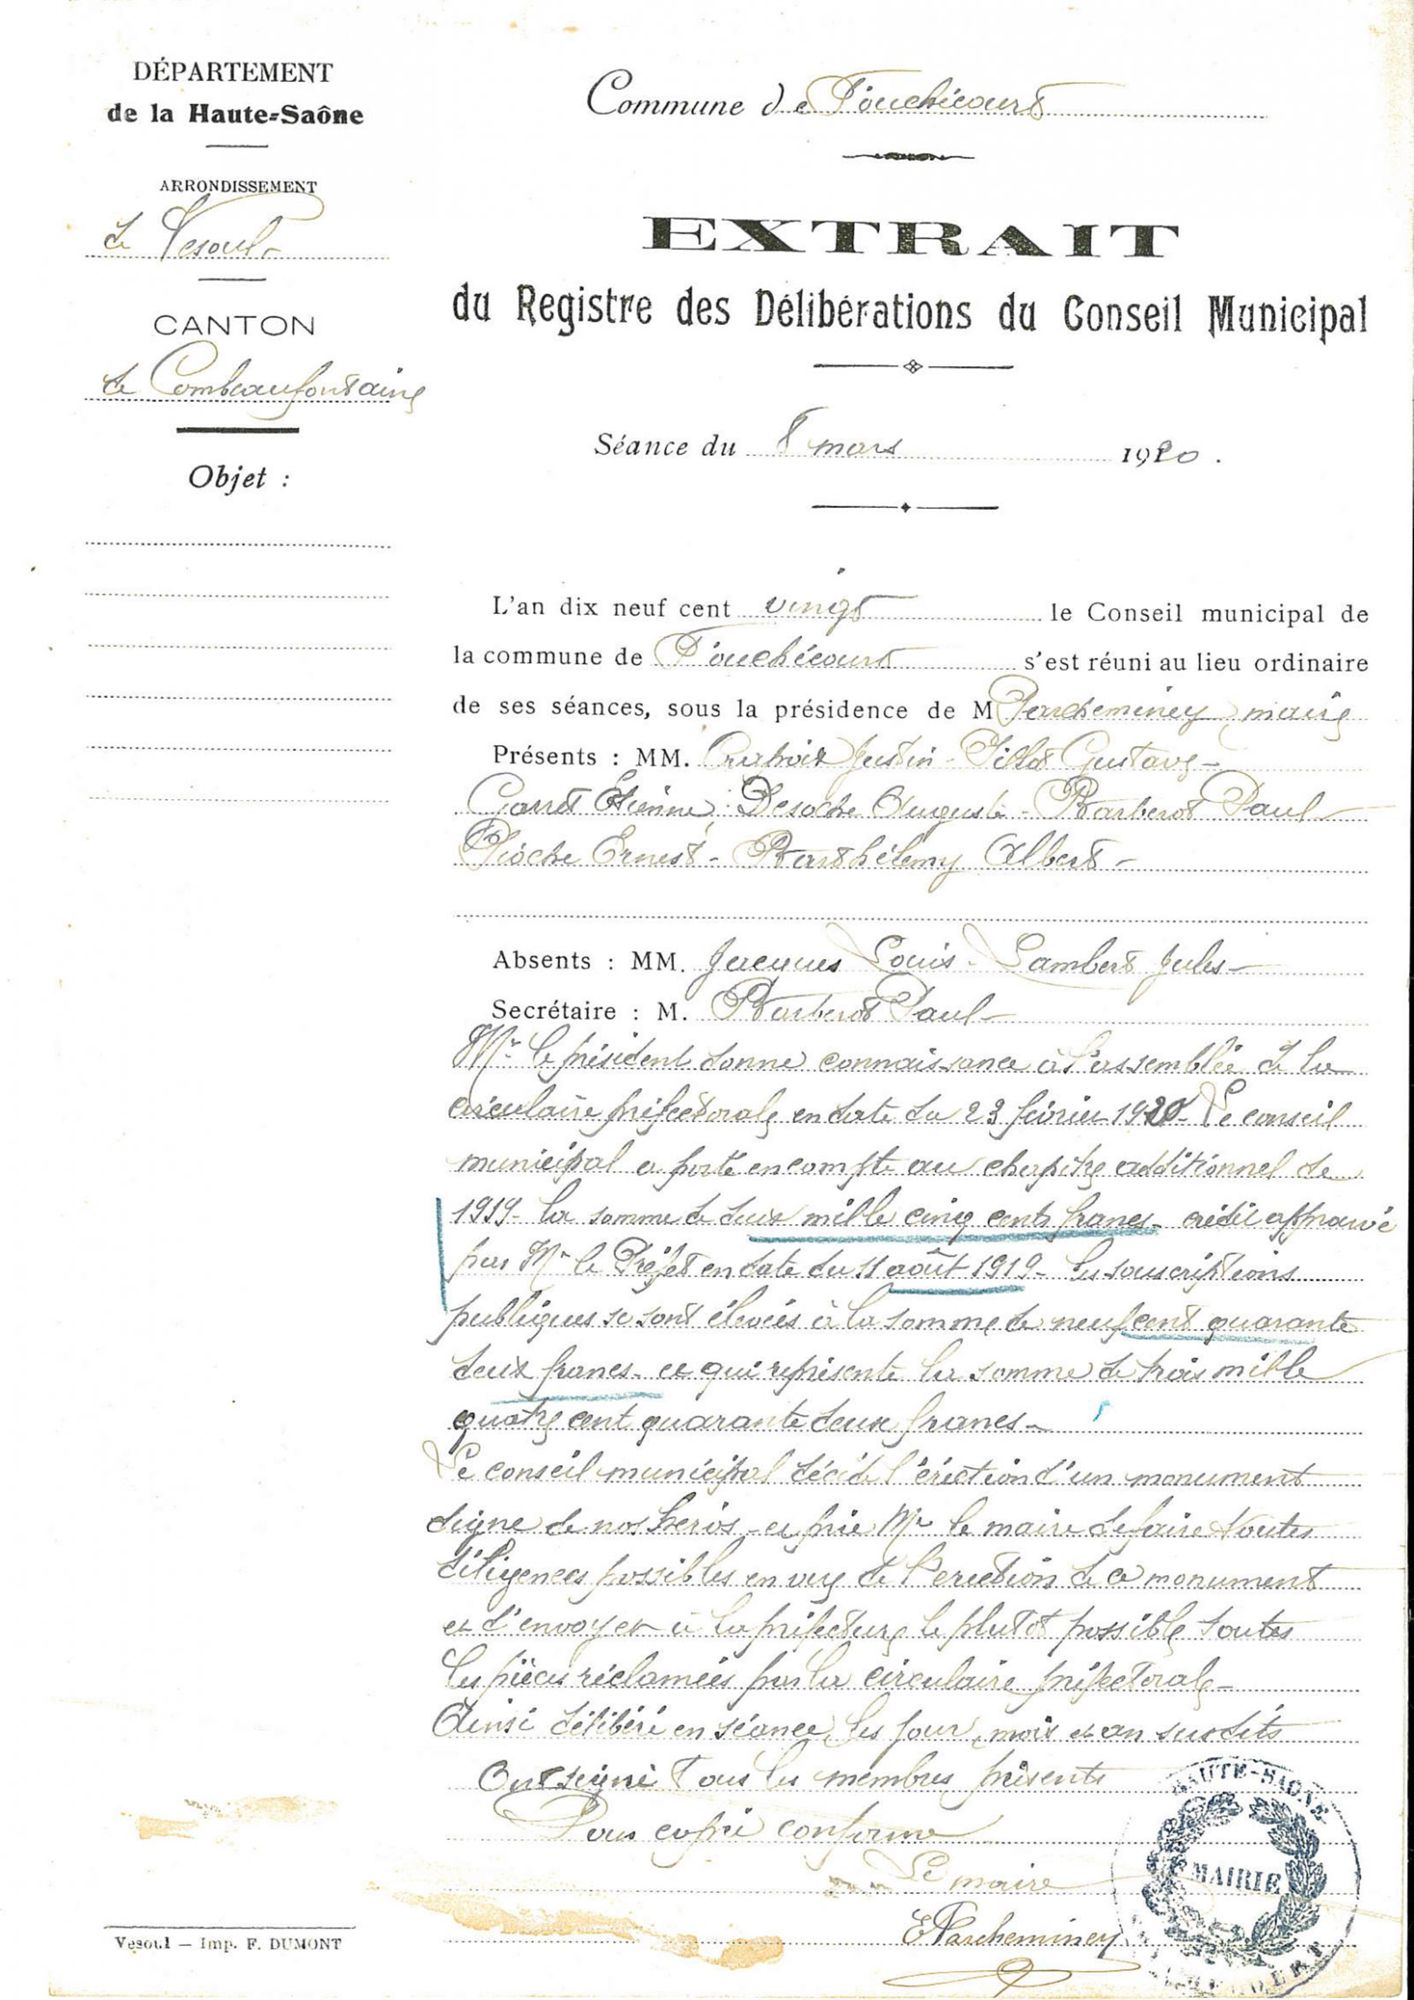 DÉPARTEMENT
de la Haute-Saône
ARRONDISSEMENT
de Vesoul
CANTON
de Combeaufontaine
Objet :
Commune de Fouchécourt
EXTRAIT
du Registre des Délibérations du Conseil Municipal
Séance du 8 mars 1920.
L'an dix neuf cent vingt le Conseil municipal de
la commune de Fouchécourt s'est réuni au lieu ordinaire
de ses séances, sous la présidence de M Parcheminey, maire
Présents : MM. Justin - Gustave -
Garret Etienne, Desoche Auguste - Barberot Paul -
Pioche Ernest - Barthélemy Albert -
Absents : MM. Jacques Louis - Lambert Jules -
Secrétaire : M. Barberot Paul -
Mr le président donne connaissance à l'assemblée de la
circulaire préfectorale en date du 23 février 1920 - Le conseil
municipal a porté en compte au chapitre additionnel de
1919 - la somme de deux mille cinq cents francs - crédit approuvé
par Mr le Préfet en date du 11 août 1919 - les souscriptions
publiques se sont élevées à la somme de neuf cent quarante
deux francs - ce qui représente la somme de trois mille
quatre cent quarante deux francs -
Le conseil municipal décide l'érection d'un monument
digne de nos héros - et prie Mr le maire de faire toutes
diligences possibles en vue de l'erection de ce monument
et d'envoyer à la préfecture le plutot possible toutes
les pièces réclamées par la circulaire préfectorale -
Ainsi délibéré en séance, les jour, mois et an susdits
Ont signé tous les membres présents
Pour copie conforme
Le maire
E Parcheminey
HAUTE-SAONE
MAIRIE
Vesoul — Imp. F. DUMONT